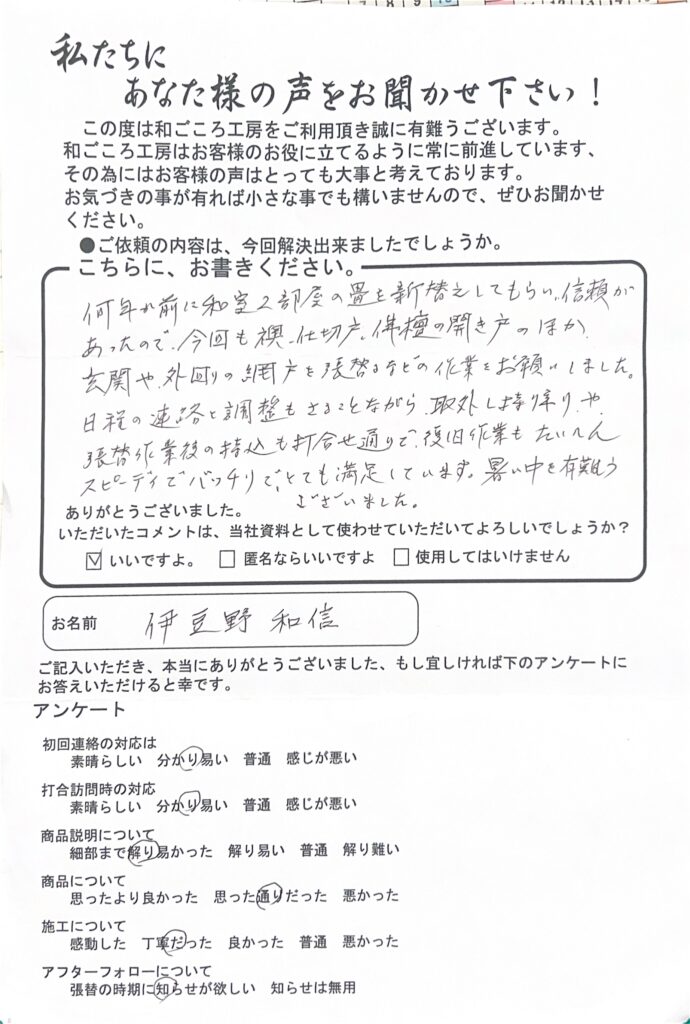 私たちに
あなた様の声をお聞かせ下さい！
この度は和ごころ工房をご利用頂き誠に有難うございます。
和ごころ工房はお客様のお役に立てるように常に前進しています、
その為にはお客様の声はとっても大事と考えております。
お気づきの事が有れば小さな事でも構いませんので、ぜひお聞かせ
ください。
●ご依頼の内容は、今回解決出来ましたでしょうか。
こちらに、お書きください。
何年か前に和室2部屋の畳を新替えしてもらい、信頼が
あったので、今回も襖、仕切戸、仏壇の開き戸のほか、
玄関や、外回りの網戸を張替るなどの作業をお願いしました。
日程の連絡と調整もさることながら、取外し持帰り、や、
張替作業後の持込も打合せ通りで、復旧作業も たいへん
スピーディでバッチリで、とても満足しています。暑い中を有難う
ございました。
ありがとうございました。
いただいたコメントは、当社資料として使わせていただいてよろしいでしょうか？
☑ いいですよ。 □ 匿名ならいいですよ □ 使用してはいけません
お名前 伊豆野 和信
ご記入いただき、本当にありがとうございました、もし宜しければ下のアンケートに
お答えいただけると幸です。
アンケート
初回連絡の対応は
素晴らしい 分かり易い 普通 感じが悪い
打合訪問時の対応
素晴らしい 分かり易い 普通 感じが悪い
商品説明について
細部まで解り易かった 解り易い 普通 解り難い
商品について
思ったより良かった 思った通りだった 悪かった
施工について
感動した 丁寧だった 良かった 普通 悪かった
アフターフォローについて
張替の時期に知らせが欲しい 知らせは無用